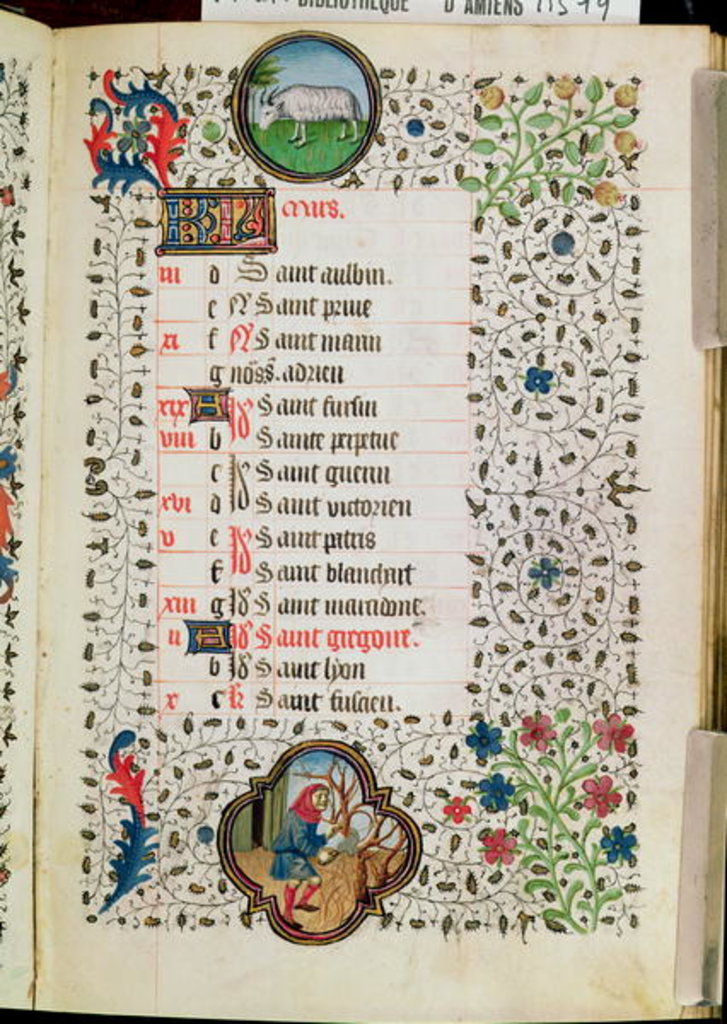 BIBLIOTHÈQUE D'AMIENS
KL mars.
iii d Saint aulbin.
e N Saint priue
xi f N Saint marin
g nos̄. s̄. adrien
xix A Saint fursin
viii b Sainte perpetue
c Saint guerin
xvi d Saint victorien
v e Saint patris
f Saint blanchart
xiii g Saint macidone.
ii A Saint gregoire.
b Saint lyon
x c k Saint fuscien.